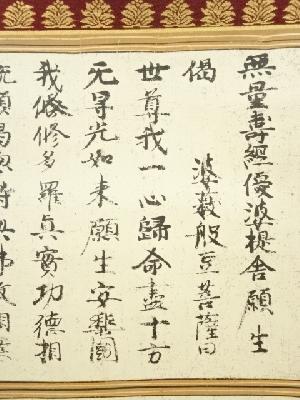 無量壽經優婆提舍願生
偈
婆薮般豆菩薩曰
世尊我一心歸命盡十方
无㝵光如来願生安樂國
我依修多羅真實功德相
說願偈